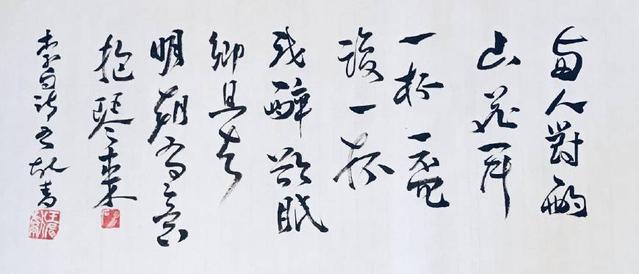 两人對酌
山花开
一杯一杯
復一杯
我醉欲眠
卿且去
明朝有意
抱琴来
李白诗